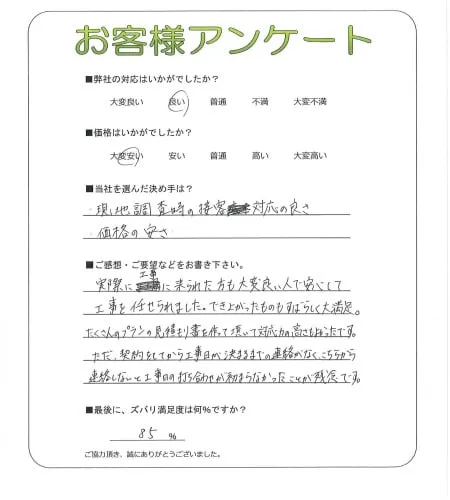 お客様アンケート
■弊社の対応はいかがでしたか?
大変良い 良い 普通 不満 大変不満
■価格はいかがでしたか?
大変安い 安い 普通 高い 大変高い
■当社を選んだ決め手は?
・現地調査時の接客対応の良さ
・価格の安さ
■ご感想・ご要望などをお書き下さい。
実際に工事に来られた方も大変良い人で安心して
工事を任せられました。でき上がったものもすばらしく大満足。
たくさんのプランの見積もり書を作って頂いて対応力の高さもよかったです。
ただ、契約をしてから工事日が決まるまでの連絡がなく、こちらから
連絡しないと工事日の打ち合わせが始まらなかったことが残念です。
■最後に、ズバリ満足度は何%ですか?
85 %
ご協力頂き、誠にありがとうございました。